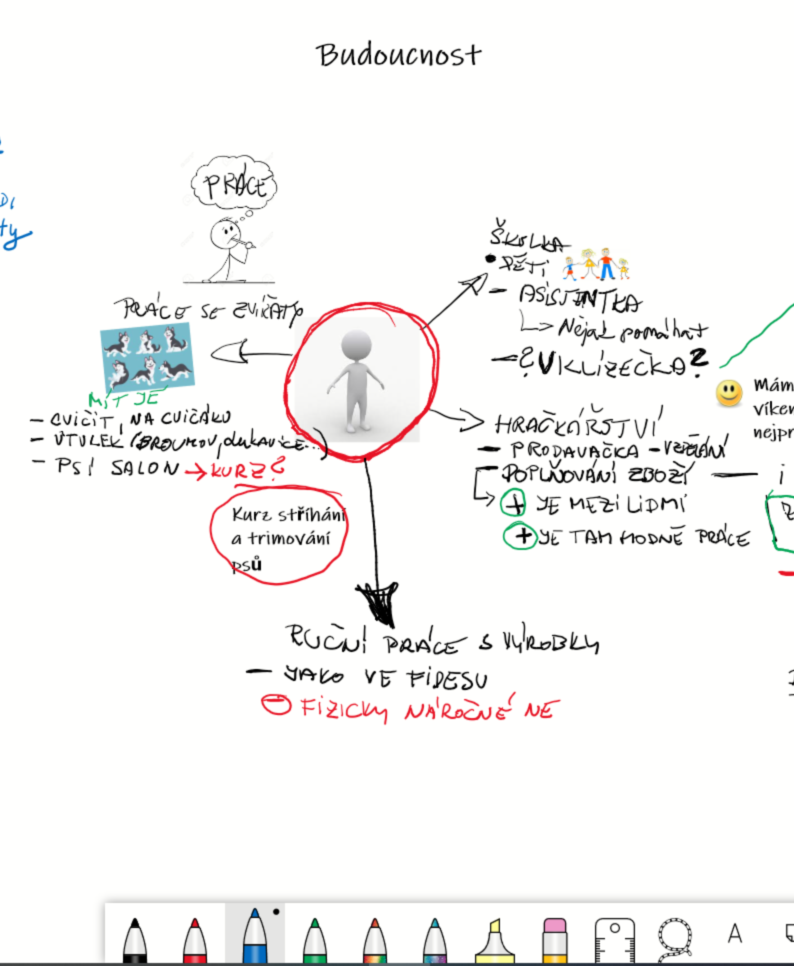 Budoucnost
PRÁCE
ty
ŠKOLKA
• DĚTI
- ASISTENTKA
Nějak pomáhat
- ? UKLÍZEČKA?
PRÁCE SE ZVÍŘATY
MÍT JE
- CVIČIT, NA CVIČÁKU
- ÚTULEK (BROUMOV,
- PSÍ SALON → KURZ?
Kurz stříhání
a trimování
psů
HRAČKÁŘSTVÍ
- PRODAVAČKA - VZDĚLÁNÍ
- DOPLŇOVÁNÍ ZBOŽÍ — i
+ JE MEZI LIDMI
+ JE TAM HODNĚ PRÁCE
Mám
víken
nejpr
RUČNÍ PRÁCE S VÝROBKY
- JAKO VE FIDESU
- FIZICKY NÁROČNÉ NE
A